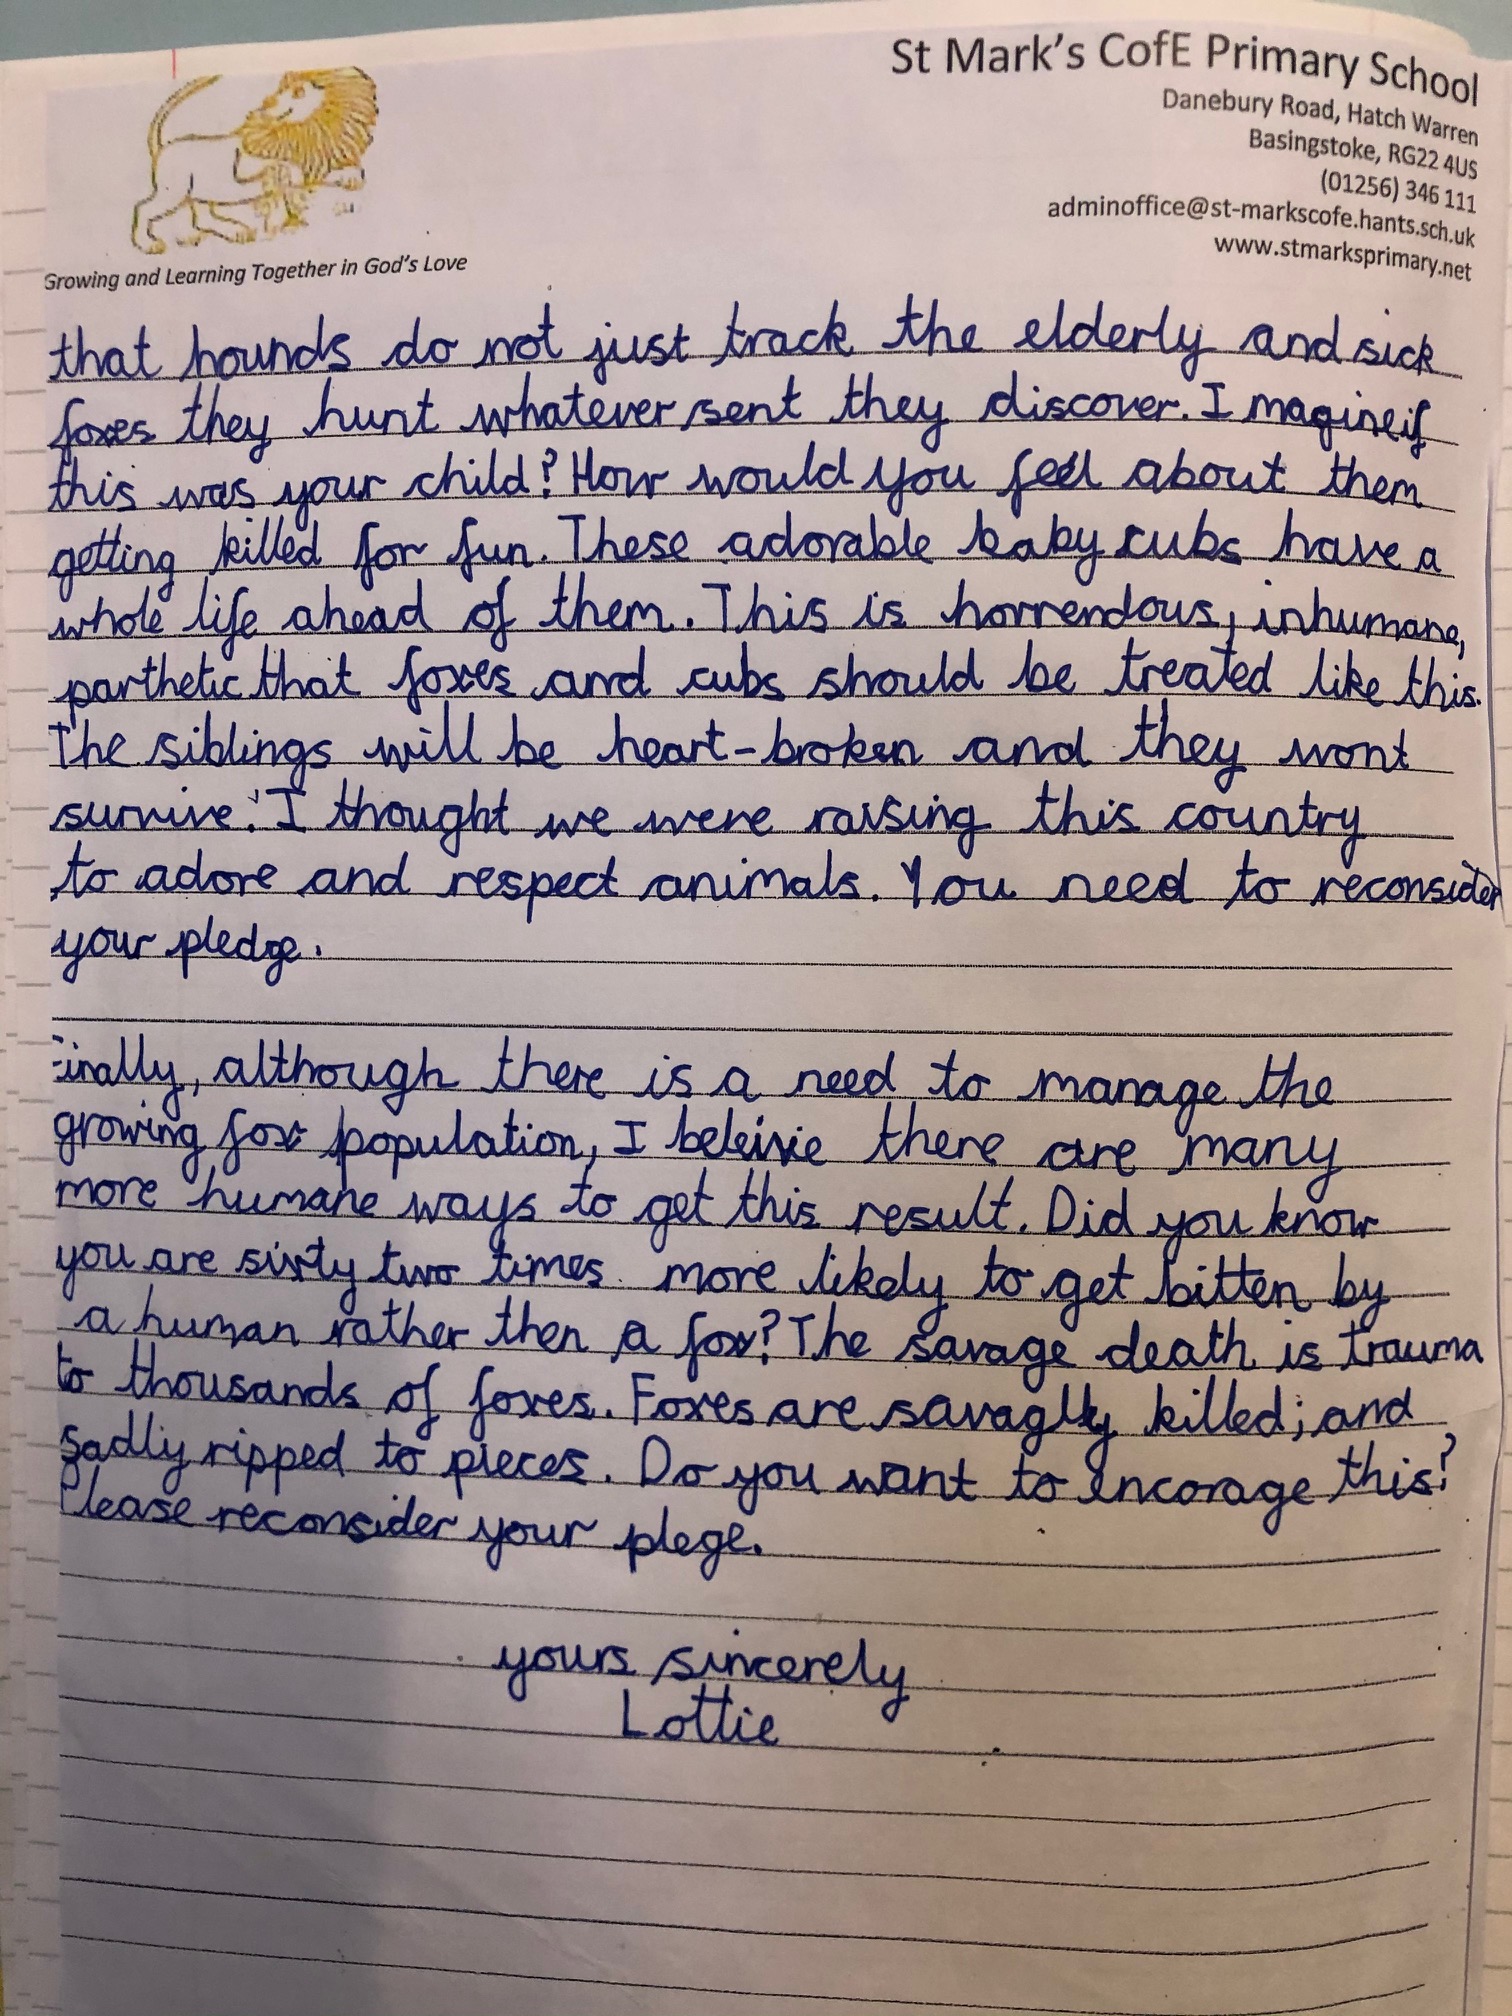 St Mark's CofE Primary School
Danebury Road, Hatch Warren
Basingstoke, RG22 4US
(01256) 346 111
adminoffice@st-markscofe.hants.sch.uk
www.stmarksprimary.net
Growing and Learning Together in God's Love
that hounds do not just track the elderly and sick
foxes they hunt whatever sent they discover. Imagine if
this was your child? How would you feel about them
getting killed for fun. These adorable baby cubs have a
whole life ahead of them. This is horrendous, inhumane,
parthetic that foxes and cubs should be treated like this.
The siblings will be heart-broken and they wont
survive! I thought we were raising this country
to adore and respect animals. You need to reconsider
your pledge.
Finally, although there is a need to manage the
growing fox population, I beleivie there are many
more humane ways to get this result. Did you know
you are sixty two times more likely to get bitten by
a human rather then a fox? The savage death is trauma
to thousands of foxes. Foxes are savaglly killed; and
sadly ripped to pieces. Do you want to encorage this?
Please reconsider your plege.
yours sincerely
Lottie